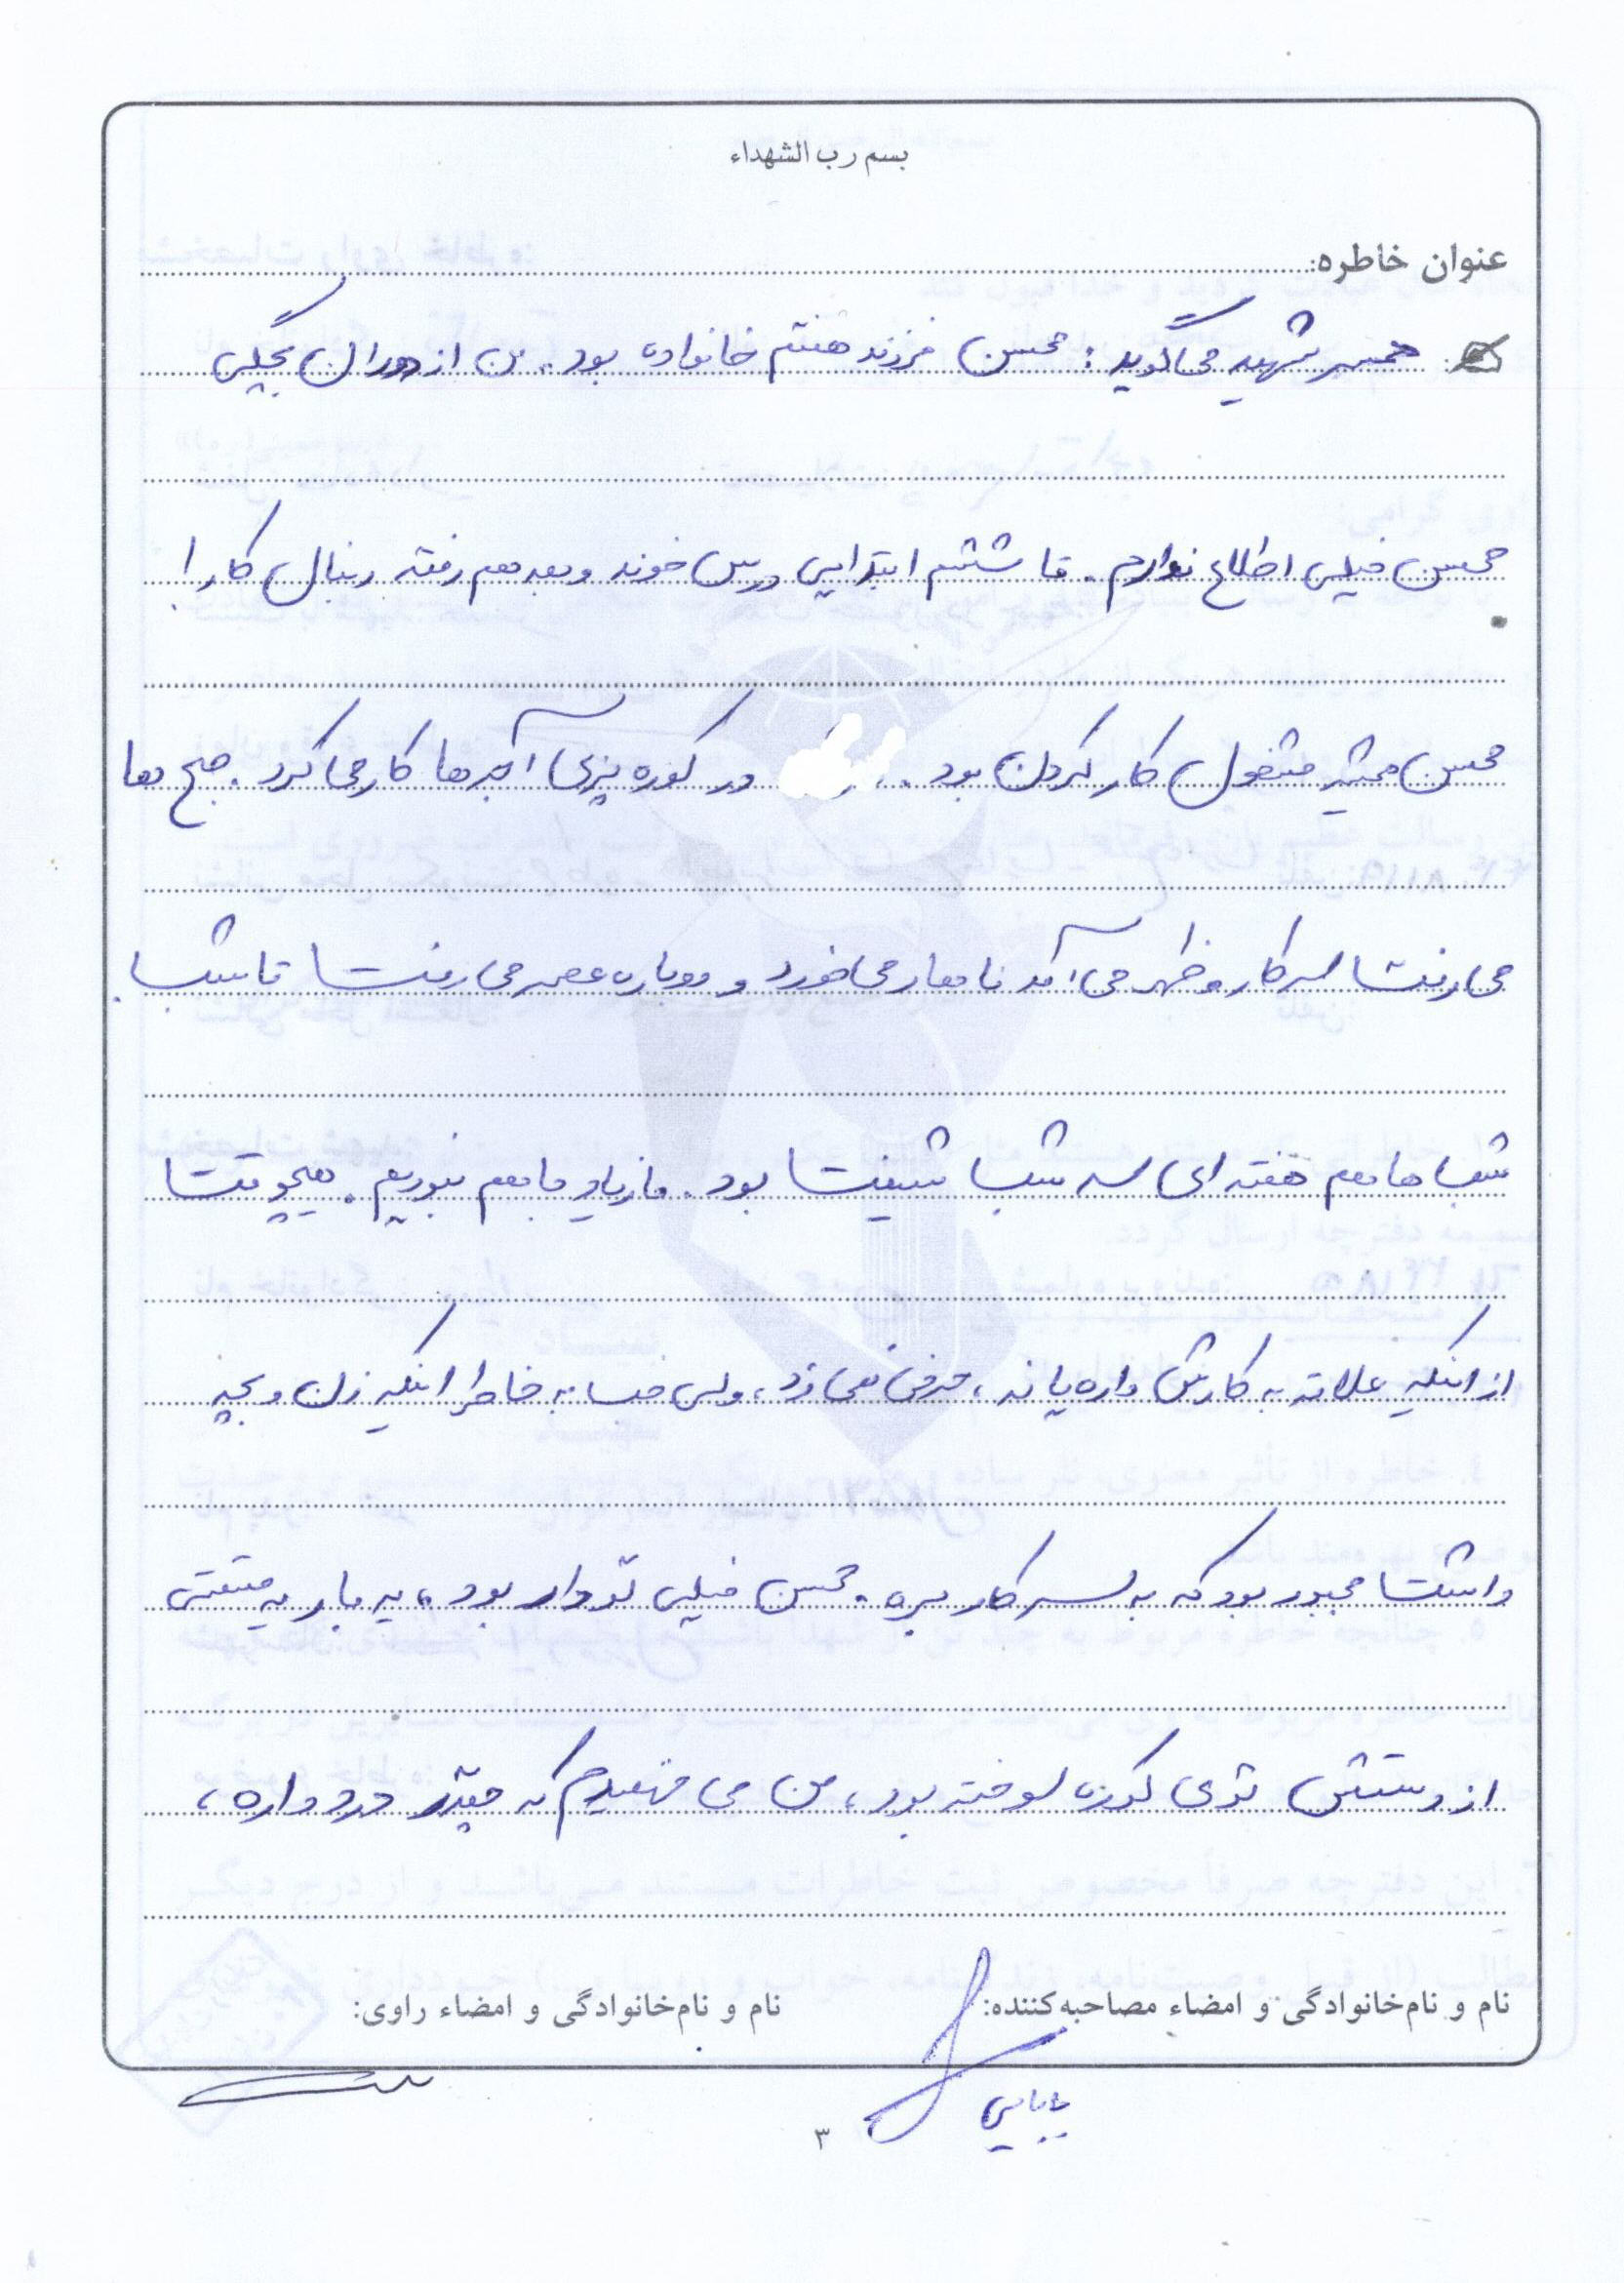 بسم رب الشهداء
عنوان خاطره:
همسر شهید می گوید: محسن فرزند هفتم خانواده بود. من از دوران بچگی
محسن خیلی اطلاع ندارم. تا ششم ابتدایی درس خوند و بعد هم رفته دنبال کار.
محسن همیشه مشغول کار کردن بود. در کوره پزی آجرها کار می کرد. صبح ها
می رفت سر کار و ظهر می آمد ناهار می خورد و دوباره عصر می رفت تا شب.
شب ها هم هفته ای سه شب شیفت بود. ما زیاد با هم نبودیم. هیچوقت
از اینکه علاقه به کارش داره یا نه، حرفی نمی زد، ولی خب به خاطر اینکه زن و بچه
داشت مجبور بود که به سر کار بره. محسن خیلی تودار بود، یه بار یه قسمتی
از دستش توی کوره سوخته بود، من می فهمیدم که چقدر درد داره،
نام و نام خانوادگی و امضاء مصاحبه کننده:
نام و نام خانوادگی و امضاء راوی:
بابایی
۳